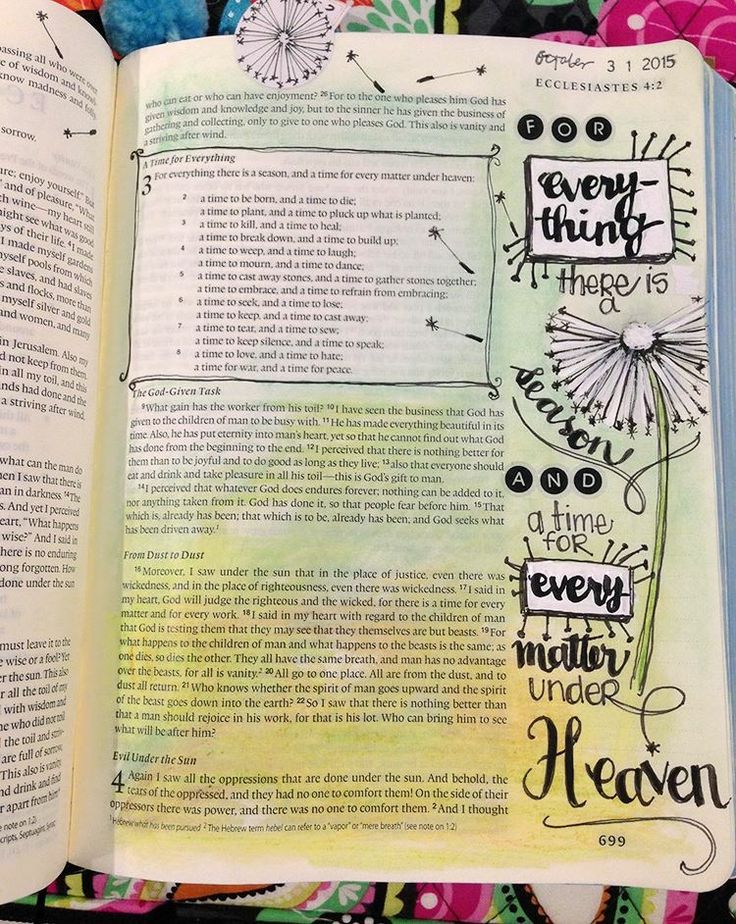 passing all who were over
e of wisdom and knowl-
know madness and folly
sorrow.
ure; enjoy yourself." But
" and of pleasure, "What
th wine—my heart still
ight see what was good
ys of their life. 4 I made
I made myself gardens
yself pools from which
e slaves, and had slaves
s and flocks, more than
myself silver and gold
and women, and many
in Jerusalem. Also my
d not keep from them.
in all my toil, and this
nds had done and the
a striving after wind,
what can the man do
hen I saw that there is
an in darkness. 14 The
s. And yet I perceived
eart, "What happens
wise?" And I said in
here is no enduring
ong forgotten. How
done under the sun
must leave it to the
wise or a fool? Yet
er the sun. This also
r all the toil of my
d with wisdom and
ne who did not toil
the toil and striv-
are full of sorrow,
This also is vanity
nd drink and find
r apart from him
e note on 1:2)
cripts, Septuagint, Syriac
October 3 1 2015
ECCLESIASTES 4:2
who can eat or who can have enjoyment? 26 For to the one who pleases him God has
given wisdom and knowledge and joy, but to the sinner he has given the business of
gathering and collecting, only to give to one who pleases God. This also is vanity and
a striving after wind.
A Time for Everything
3 For everything there is a season, and a time for every matter under heaven:
2 a time to be born, and a time to die;
a time to plant, and a time to pluck up what is planted;
3 a time to kill, and a time to heal;
a time to break down, and a time to build up;
4 a time to weep, and a time to laugh;
a time to mourn, and a time to dance;
5 a time to cast away stones, and a time to gather stones together;
a time to embrace, and a time to refrain from embracing;
6 a time to seek, and a time to lose;
a time to keep, and a time to cast away;
7 a time to tear, and a time to sew;
a time to keep silence, and a time to speak;
8 a time to love, and a time to hate;
a time for war, and a time for peace.
The God-Given Task
9 What gain has the worker from his toil? 10 I have seen the business that God has
given to the children of man to be busy with. 11 He has made everything beautiful in its
time. Also, he has put eternity into man's heart, yet so that he cannot find out what God
has done from the beginning to the end. 12 I perceived that there is nothing better for
them than to be joyful and to do good as long as they live; 13 also that everyone should
eat and drink and take pleasure in all his toil—this is God's gift to man.
14 I perceived that whatever God does endures forever; nothing can be added to it,
nor anything taken from it. God has done it, so that people fear before him. 15 That
which is, already has been; that which is to be, already has been; and God seeks what
has been driven away.1
From Dust to Dust
16 Moreover, I saw under the sun that in the place of justice, even there was
wickedness, and in the place of righteousness, even there was wickedness. 17 I said in
my heart, God will judge the righteous and the wicked, for there is a time for every
matter and for every work. 18 I said in my heart with regard to the children of man
that God is testing them that they may see that they themselves are but beasts. 19 For
what happens to the children of man and what happens to the beasts is the same; as
one dies, so dies the other. They all have the same breath, and man has no advantage
over the beasts, for all is vanity.2 20 All go to one place. All are from the dust, and to
dust all return. 21 Who knows whether the spirit of man goes upward and the spirit
of the beast goes down into the earth? 22 So I saw that there is nothing better than
that a man should rejoice in his work, for that is his lot. Who can bring him to see
what will be after him?
Evil Under the Sun
4 Again I saw all the oppressions that are done under the sun. And behold, the
tears of the oppressed, and they had no one to comfort them! On the side of their
oppressors there was power, and there was no one to comfort them. 2 And I thought
1 Hebrew what has been pursued 2 The Hebrew term hebel can refer to a "vapor" or "mere breath" (see note on 1:2)
FOR
every-
thing
there is
a
season
AND
a time
FOR
every
matter
under
Heaven
699